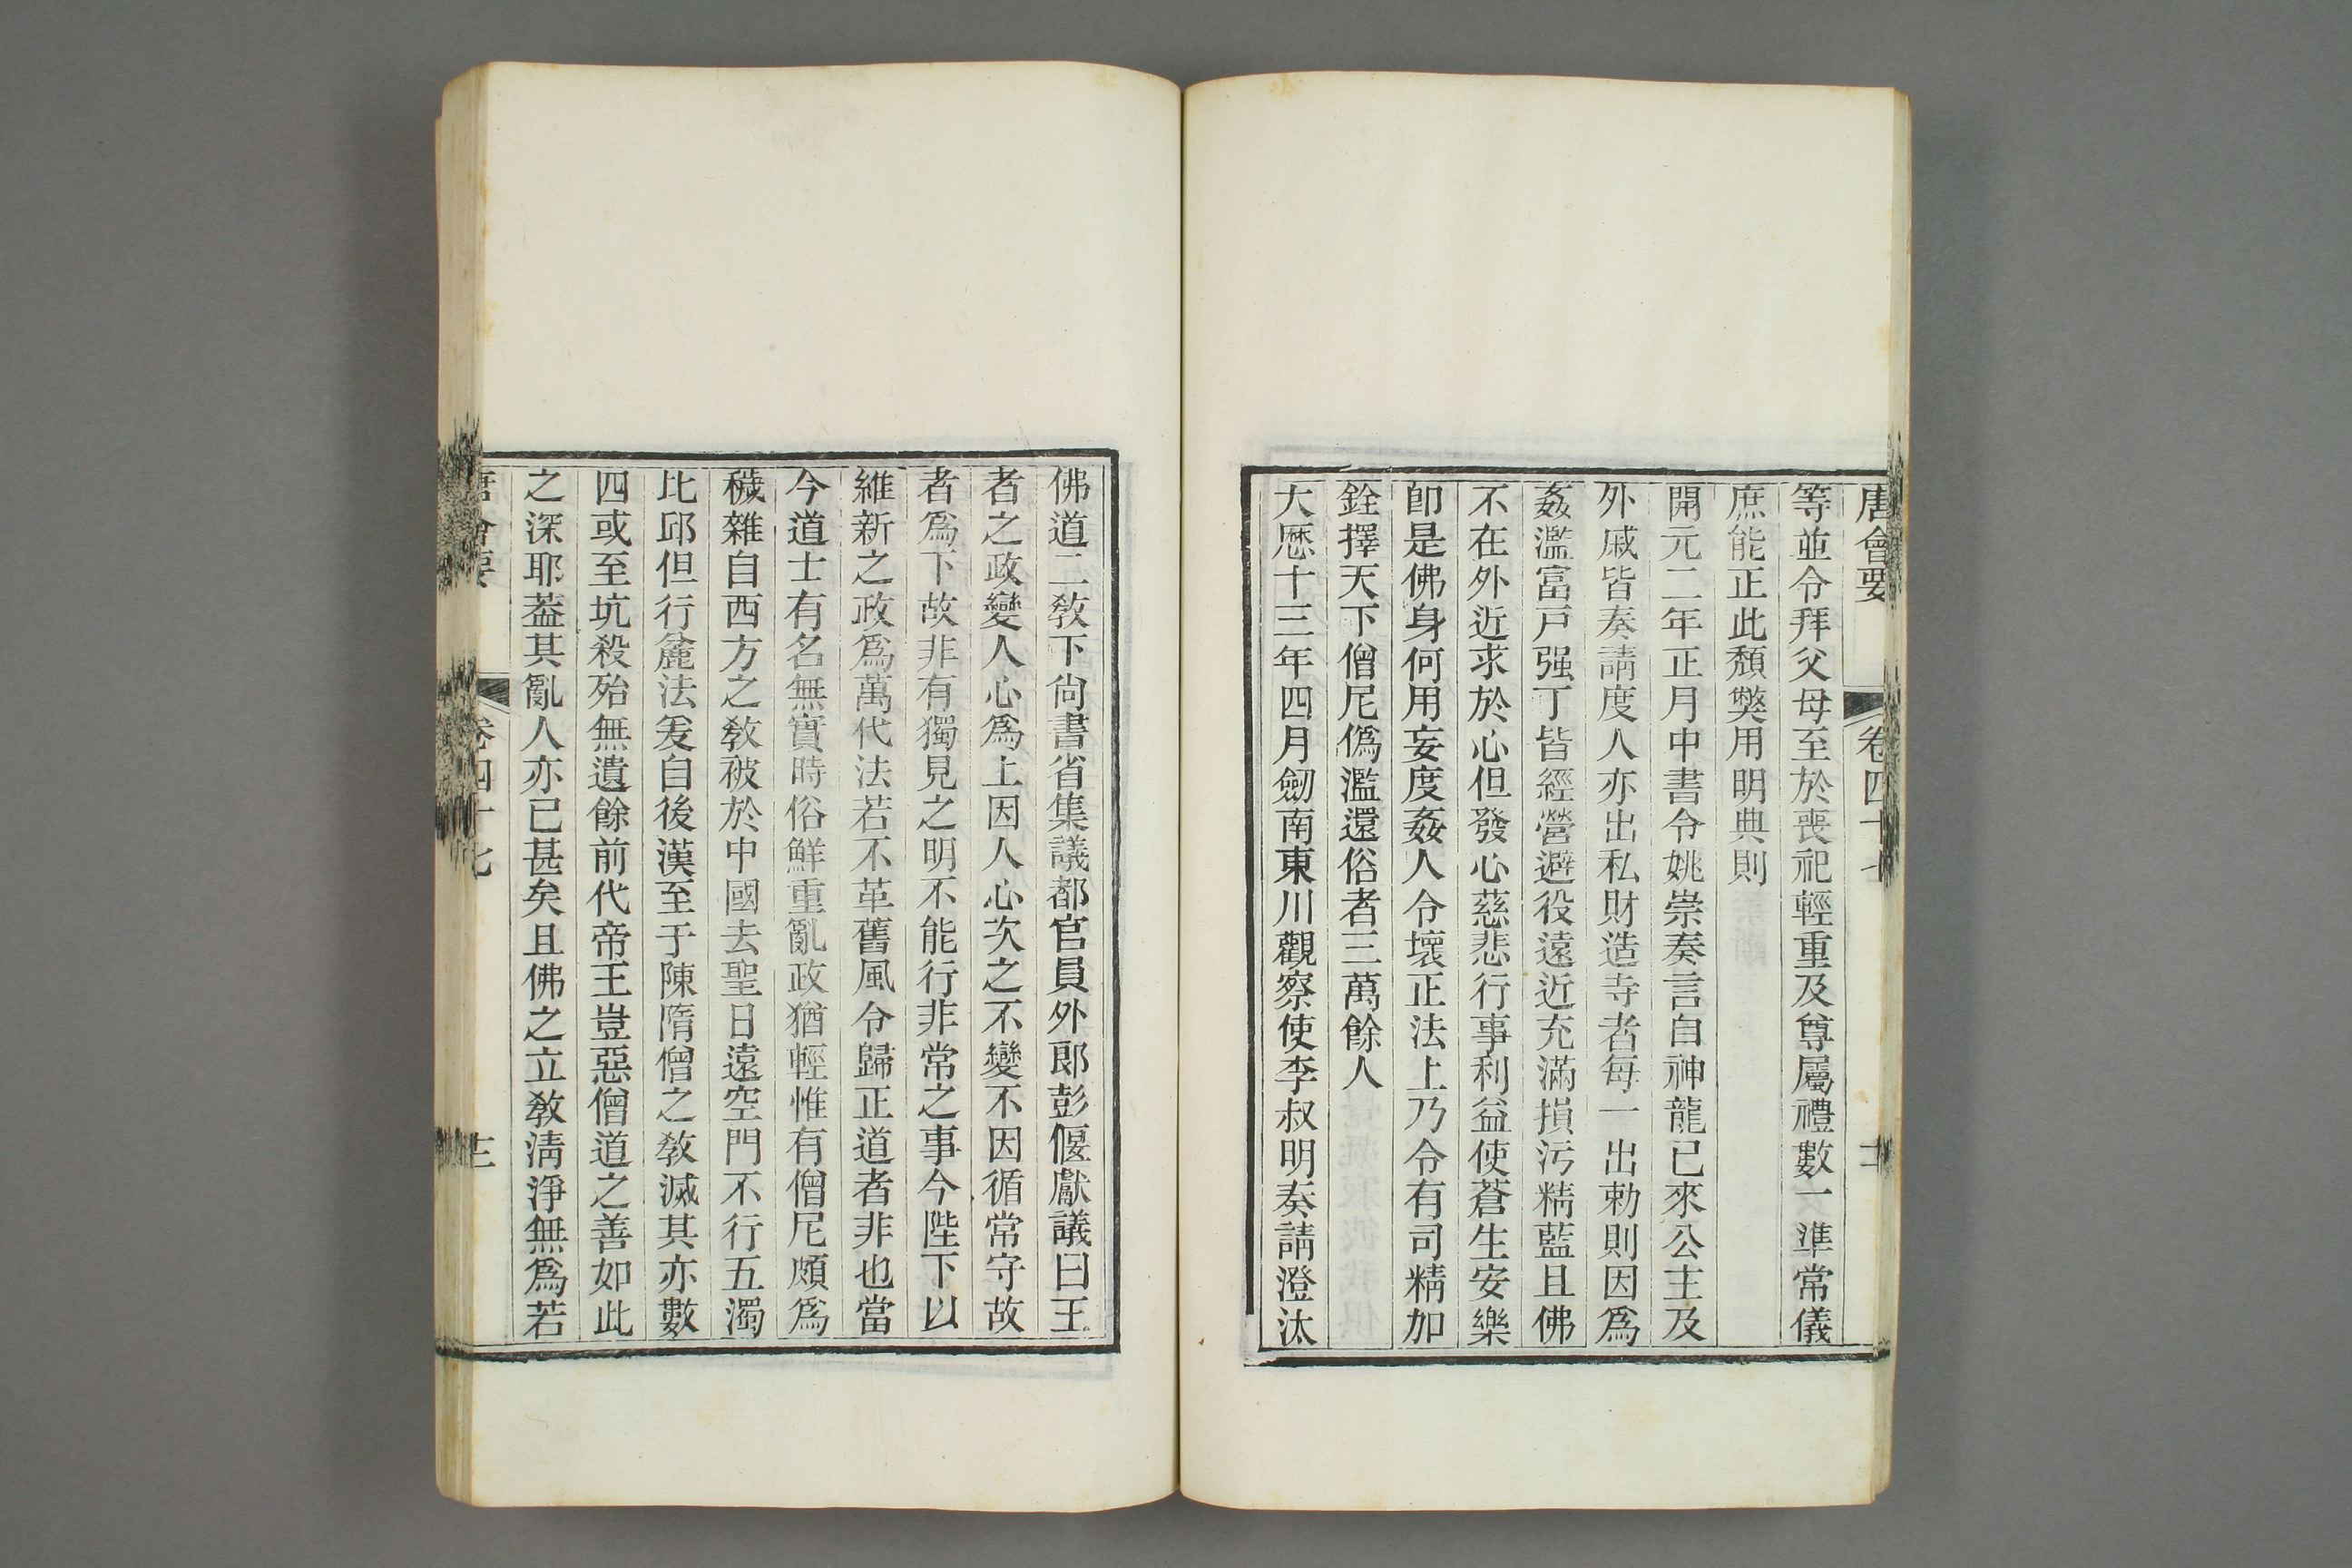 唐會要 卷四十七
等並令拜父母至於喪祀輕重及尊屬禮數一準常儀
庶能正此頹獘用明典則
開元二年正月中書令姚崇奏言自神龍已來公主及
外戚皆奏請度人亦出私財造寺者每一出勅則因爲
姦濫富戸强丁皆經營避役遠近充滿損污精藍且佛
不在外近求於心但發心慈悲行事利益使蒼生安樂
卽是佛身何用妄度姦人令壞正法上乃令有司精加
銓擇天下僧尼僞濫還俗者三萬餘人
大厯十三年四月劒南東川觀察使李叔明奏請澄汰
佛道二敎下尙書省集議都官員外郞彭偃獻議曰王
者之政變人心爲上因人心次之不變不因循常守故
者爲下故非有獨見之明不能行非常之事今陛下以
維新之政爲萬代法若不革舊風令歸正道者非也當
今道士有名無實時俗鮮重亂政猶輕惟有僧尼頗爲
穢雜自西方之敎被於中國去聖日遠空門不行五濁
比邱但行麄法爰自後漢至于陳隋僧之敎滅其亦數
四或至坑殺殆無遺餘前代帝王豈惡僧道之善如此
之深耶葢其亂人亦已甚矣且佛之立敎淸淨無爲若
唐會要 卷四十七